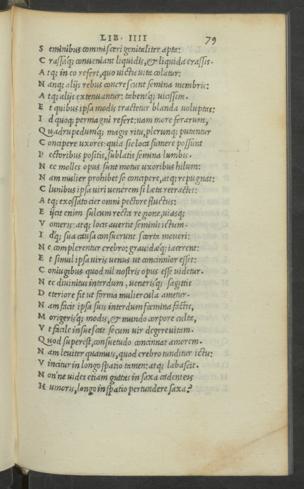 LIB. IIII 79
S eminibus commisceri genitaliter apta:
C rassaq; conueniant liquidis, & liquida crassis.
A tq; in eo refert, quo uictu uita colatur:
N anq; alijs rebus concrescunt semina membris:
A tq; alijs extenuantur: tabentq; uicissim.
E t quibus ipsa modis tractetur blanda uoluptas:
I d quoq; permagni refert: nam more ferarum,
Q uadrupedumq; magis ritu, plerunq; putantur
C oncipere uxores: quia sic loca sumere possunt
P ectoribus positis, sublatis semina lumbis.
N ec molles opus sunt motus uxoribus hilum:
N am mulier prohibet se concipere, atq; repugnat:
C lunibus ipsa uiri uenerem si læta retractet:
A tq; exossato ciet omni pectore fluctus:
E ijcit enim sulcum recta regione, uiaq;
V omeris: atq; locis auertit seminis ictum.
I dq; sua causa consuerunt scorta moueri:
N e complerentur crebro; grauidæq; iacerent:
E t simul ipsa uiris uenus ut concinnior esset:
C oniugibus quod nil nostris opus esse uidetur.
N ec diuinitus interdum, uenerisq; sagittis
D eteriore fit ut forma muliercula ametur.
N am facit ipsa suis interdum fœmina factis,
M origerisq; modis, & mundo corpore culta,
V t facile insuescat secum uir degere uitam.
Q uod superest, consuetudo concinnat amorem.
N am leuiter quamuis, quod crebro tunditur ictu:
V incitur in longo spatio tamen: atq; labascit.
N on'ne uides etiam guttas in saxa cadenteis
H umoris, longo in spatio pertundere saxa?